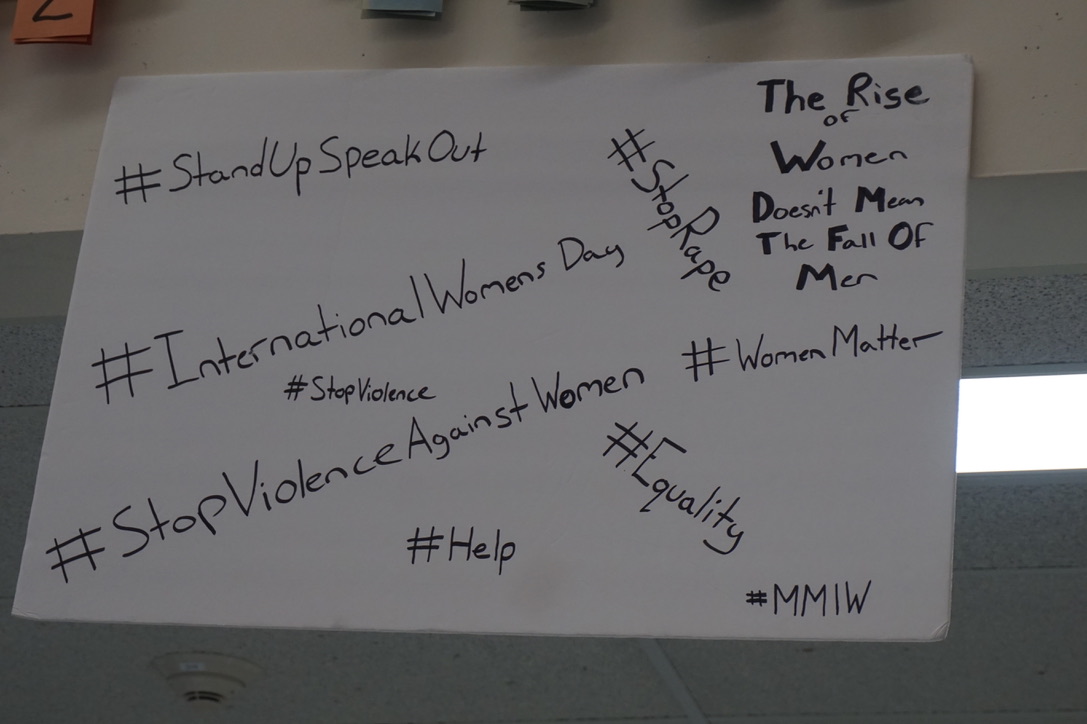 2
#StandUpSpeakOut
#StopRape
The Rise
of
Women
Doesn't Mean
The Fall Of
Men
#InternationalWomens Day
#StopViolence
#WomenMatter
#StopViolenceAgainstWomen
#Equality
#Help
#MMIW